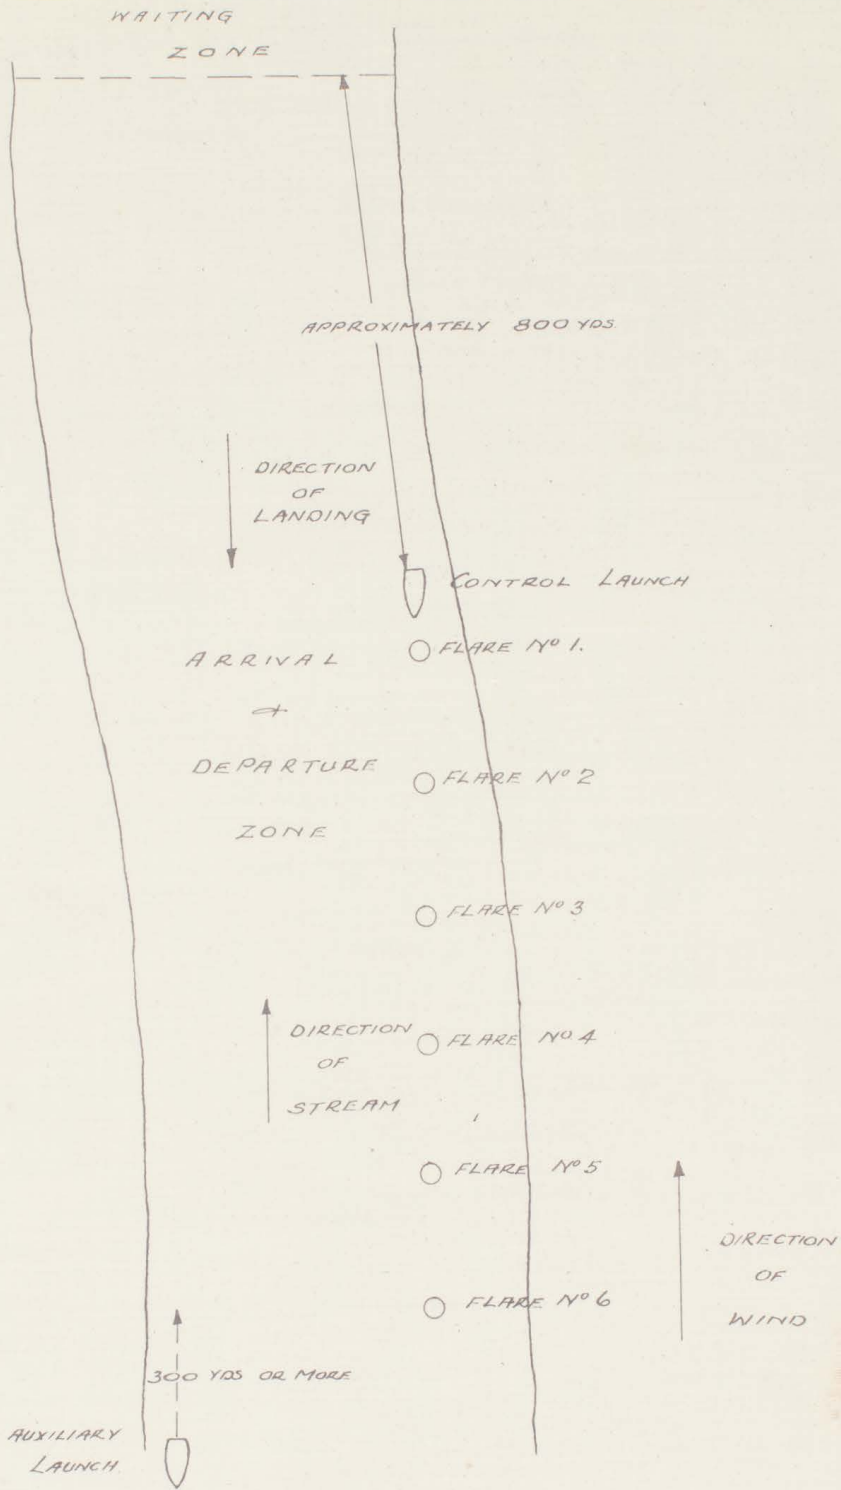 WAITING
ZONE
APPROXIMATELY 800 YDS.
DIRECTION
OF
LANDING
CONTROL LAUNCH
FLARE Nº 1.
ARRIVAL
+
DEPARTURE
ZONE
FLARE Nº 2
FLARE Nº 3
FLARE Nº 4
DIRECTION
OF
STREAM
FLARE Nº 5
DIRECTION
OF
WIND
FLARE Nº 6
300 YDS OR MORE
AUXILIARY
LAUNCH